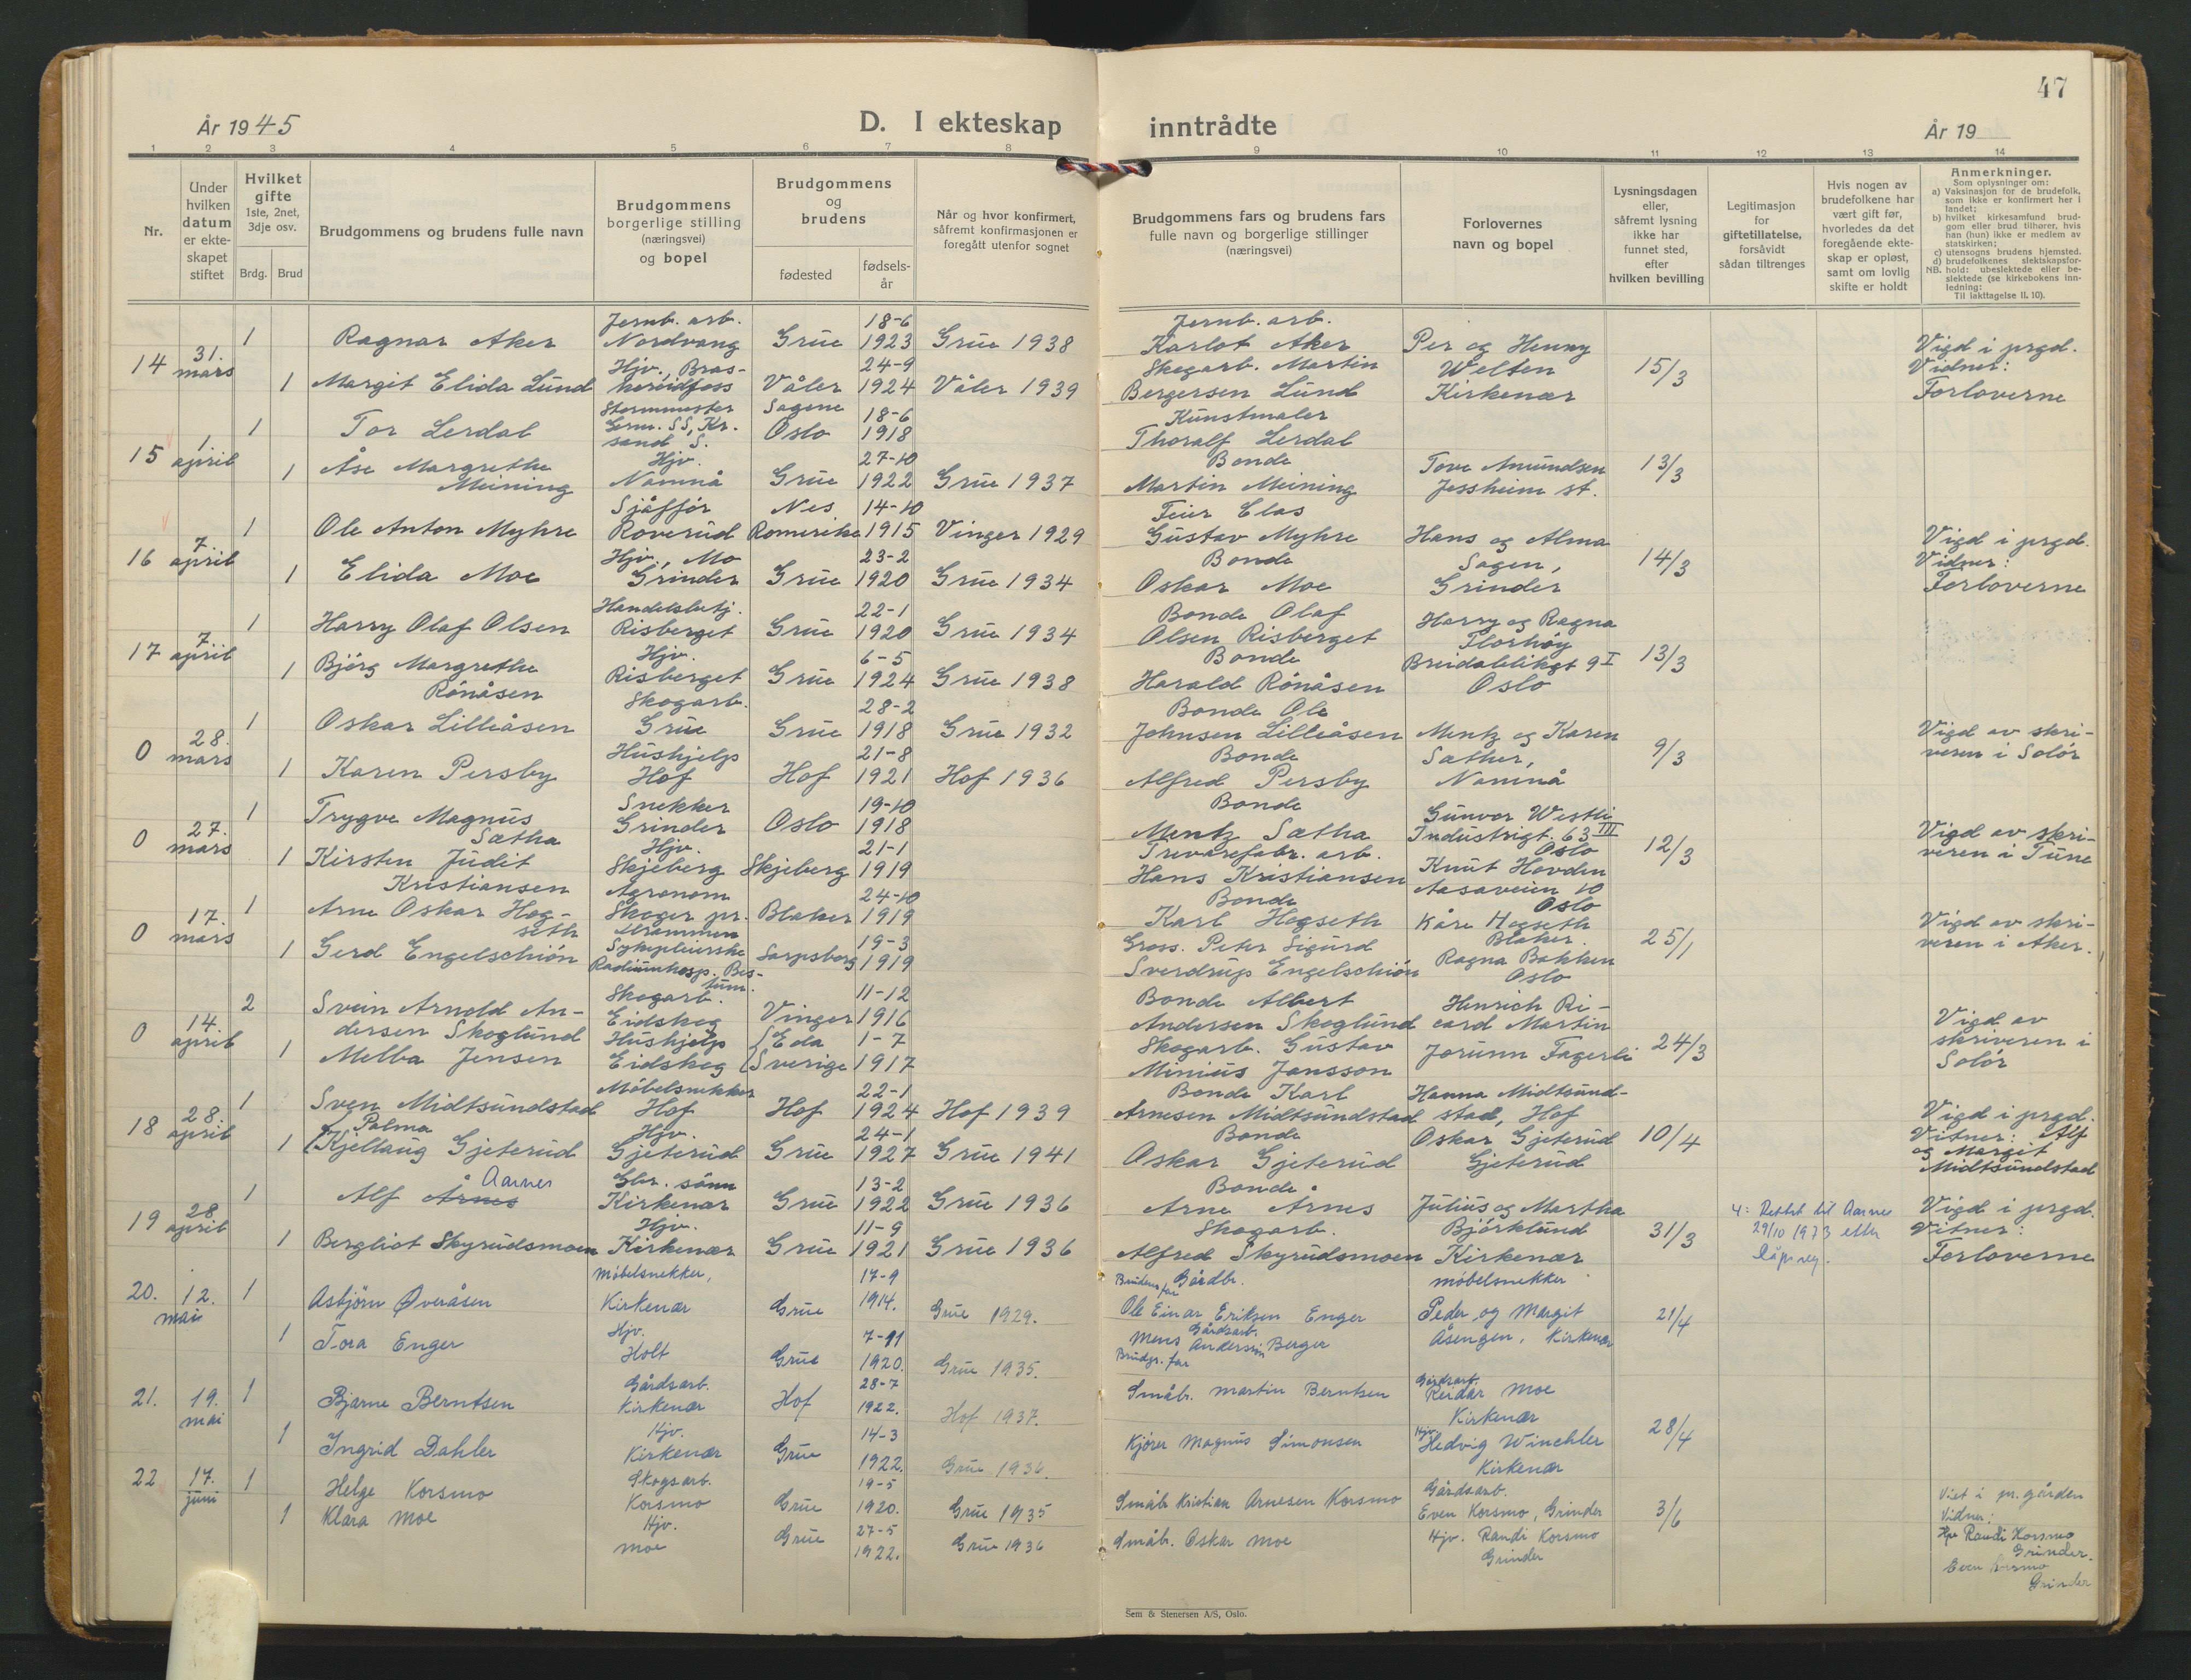 47
År 1945
D. I ekteskap inntrådte
År 19
1 2 3 4 5 6 7 8 9 10 11 12 13 14
Nr.
Under
hvilken
datum
er ekte-
skapet
stiftet
Hvilket
gifte
1ste, 2net,
3dje osv.
Brdg. Brud
Brudgommens og brudens fulle navn
Brudgommens
borgerlige stilling
(næringsvei)
og bopel
Brudgommens
og
brudens
fødested
fødsels-
år
Når og hvor konfirmert,
såfremt konfirmasjonen er
foregått utenfor sognet
Brudgommens fars og brudens fars
fulle navn og borgerlige stillinger
(næringsvei)
Forlovernes
navn og bopel
Lysningsdagen
eller,
såfremt lysning
ikke har
funnet sted,
efter
hvilken bevilling
Legitimasjon
for
giftetillatelse,
forsåvidt
sådan tiltrenges
Hvis nogen av
brudefolkene har
vært gift før,
hvorledes da det
foregående ekte-
skap er opløst,
samt om lovlig
skifte er holdt
Anmerkninger.
Som oplysninger om:
a) Vaksinasjon for de brudefolk,
som ikke er konfirmert her i
landet;
b) hvilket kirkesamfund brud-
gom eller brud tilhører, hvis
han (hun) ikke er medlem av
statskirken;
c) utensogns brudens hjemsted.
d) brudefolkenes slektskapsfor-
NB. hold: ubeslektede eller be-
slektede (se kirkebokens inn-
ledning:
Til iakttagelse II. 10).
14 31. mars
1 Ragnar Aker
Jernb. arb.
Nordvang
Grue 18-6 1923 Grue 1938
Jernb. arb.
Karlot Aker
Per og Henny
Welten
Kirkenær
15/3
Vigd i prgd.
Vidner:
Forloverne
1 Margit Elida Lund
Hjv., Bras-
kereidfoss
Våler 24-9 1924 Våler 1939
Skogarb. Martin
Bergersen Lund
15 1. april
1 Tor Lerdal
Stormmester
Germ. SS, Kr.
sand S.
Sagene
Oslo 18-6 1918
Kunstmaler
Thoralf Lerdal
Tove Amundsen
Jessheim st.
13/3
1 Åse Margrethe
Meining
Hjv.
Namnå
Grue 27-10 1922 Grue 1937
Bonde
Martin Meining
16 7 april
1 Ole Anton Myhre
Sjåffør
Roverud
Nes
Romerike 14-10 1915 Vinger 1929
Feier Elas
Gustav Myhre
Hans og Alma
Sagen,
Grinder
14/3
Vigd i prgd.
Vidner:
Forloverne
1 Elida Moe
Hjv., Mo
Grinder
Grue 23-2 1920 Grue 1934
Bonde
Oskar Moe
17 7 april
1 Harry Olaf Olsen
Handelsbetj.
Risberget
Grue 22-1 1920 Grue 1934
Bonde Olaf
Olsen Risberget
Harry og Ragna
Florhøy
Breidablikgt 9 I
Oslo
13/3
1 Bjørg Margrethe
Rönåsen
Hjv.
Risberget
Grue 6-5 1924 Grue 1938
Bonde
Harald Rönåsen
0 28. mars
1 Oskar Lilleåsen
Skogarb.
Grue
Grue 28-2 1918 Grue 1932
Bonde Ole
Johnsen Lilleåsen
Mentz og Karen
Sæther,
Namnå
9/3
Vigd av skri-
veren i Solør
1 Karen Persby
Hushjelp
Hof
Hof 21-8 1921 Hof 1936
Bonde
Alfred Persby
0 27. mars
1 Trygve Magnus
Sætha
Snekker
Grinder
Oslo 19-10 1918
Bonde
Mentz Sætha
Gunvor Westli
Industrigt. 63 III
Oslo
Knut Hovden
Aasaveien 10
Oslo
12/3
Vigd av skri-
veren i Tune
1 Kirsten Judit
Kristiansen
Hjv.
Skjeberg
Skjeberg 21-1 1919
Trevarefabr. arb.
Hans Kristiansen
0 17. mars
1 Arne Oskar Hog-
seth
Agronom
Skoger pr.
Drammen
Blaker 24-10 1919
Bonde
Karl Hogseth
Kåre Hogseth
Blaker.
Ragna Bakken
Oslo
25/1
Vigd av skri-
veren i Aker.
1 Gerd Engelschiøn
Sykepleierske
Radiumhosp. Bes-
tum.
Sarpsborg 19-3 1919
Gross. Peter Sigurd
Sverdrup Engelschiøn
0 14. april
2 Svein Arnold An-
dersen Skoglund
Skogarb.
Eidskog
Vinger 11-12 1916
Bonde Albert
Andersen Skoglund
Henrich Ri-
card Martin
Jorunn Fagerli
24/3
Vigd av
skriveren i
Solør
1 Melba Jensen
Hushjelp
Eidskog
Eda
Sverige 1-7 1917
Skogarb. Gustav
Minius Jansson
18 28. april
1 Sven Midtsundstad
Møbelsnekker
Hof
Hof 22-1 1924 Hof 1939
Bonde Karl
Arnesen Midtsundstad
Hanna Midtsund-
stad, Hof
Oskar Gjeterud
Gjeterud
10/4
Vigd i prgd.
Vitner: Alf
og Margit
Midtsundstad
1 Palma
Kjellaug Gjeterud
Hjv.
Gjeterud
Grue 24-1 1927 Grue 1941
Bonde
Oskar Gjeterud
19 28. april
1 Alf Årnes Aarnes
Gbr. sønn
Kirkenær
Grue 13-2 1922 Grue 1936
Bonde
Arne Årnes
Julius og Martha
Björklund
Kirkenær
31/3
4: Rettet til Aarnes
29/10 1973 etter
dåpsreg.
Vigd i prgd.
Vitner:
Forloverne
1 Bergliot Skyrudsmoen
Hjv.
Kirkenær
Grue 11-9 1921 Grue 1936
Skogarb.
Alfred Skyrudsmoen
20. 12. mai
1 Asbjørn Øveråsen
Møbelsnekker,
Kirkenær
Grue 17-9 1914. Grue 1929.
Brudens far Gårdbr.
Ole Einar Eriksen Enger
møbelsnekker
Peder og Margit
Åsengen, Kirkenær
21/4
1 Tora Enger
Hjv.
Holt
Grue 7-11 1920. Grue 1935.
Gårdsarb.
Mens Andersson Berger
Brudgr. far
21. 19. mai
1 Bjarne Berntsen
Gårdsarb.
Kirkenær
Hof 28-7 1922. Hof 1937.
Småbr. Martin Berntsen
Gårdsarb.
Reidar Moe
Kirkenær
28/4
1 Ingrid Dahler
Hjv.
Kirkenær
Grue 14-3 1922. Grue 1936.
Kjører Magnus Simonsen
Hjv.
Hedvig Winchler
Kirkenær
22 17. juni
1 Helge Korsmo
Skogsarb.
Korsmo
Grue 19-5 1920. Grue 1935
Småbr. Kristian Arnesen Korsmo
Gårdsarb.
Even Korsmo, Grinder
3/6
Viet i pr.gården
Vidner:
Hjv Randi Korsmo
Grinder.
Even Korsmo
Grinder
1 Klara Moe
Hjv.
Moe
Grue 27-5 1922. Grue 1936
Småbr. Oskar Moe
Hjv. Randi Korsmo
Grinder
Sem & Stenersen A/S, Oslo.